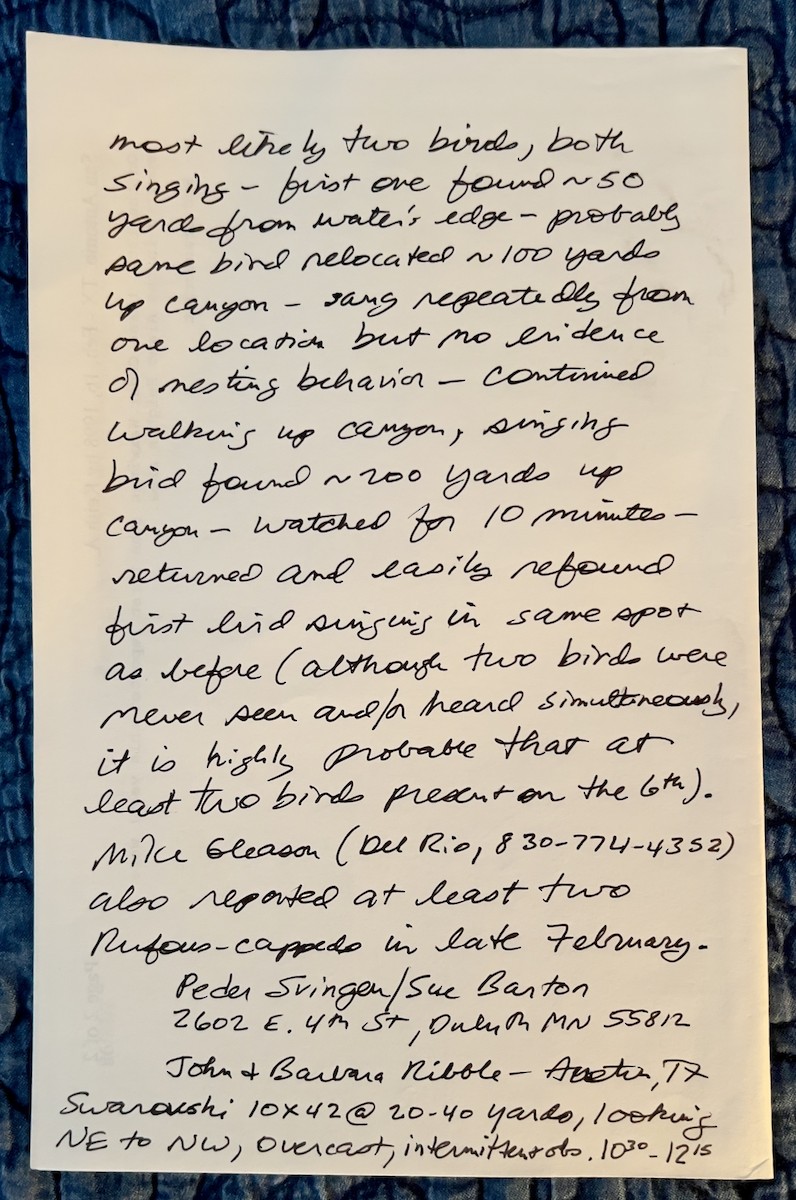 most likely two birds, both
singing – first one found ~50
yards from water's edge – probably
same bird relocated ~100 yards
up canyon – sang repeatedly from
one location but no evidence
of nesting behavior – continued
walking up canyon, singing
bird found ~200 yards up
canyon – watched for 10 minutes –
returned and easily refound
first bird singing in same spot
as before (although two birds were
never seen and/or heard simultaneously,
it is highly probable that at
least two birds present on the 6th).
Mike Gleason (Del Rio, 830-774-4352)
also reported at least two
Rufous-cappeds in late February.
Peder Svingen/Sue Barton
2602 E. 4th St, Duluth MN 55812
John & Barbara Ribble – Austin, TX
Swarovski 10x42 @ 20-40 yards, looking
NE to NW, overcast, intermittent obs. 10³⁰-12¹⁵